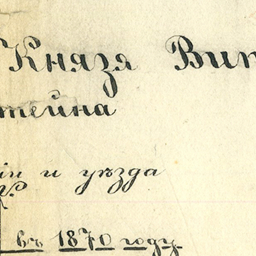 Князя Вит
тейна
іи и уѣзда
въ 1870 году